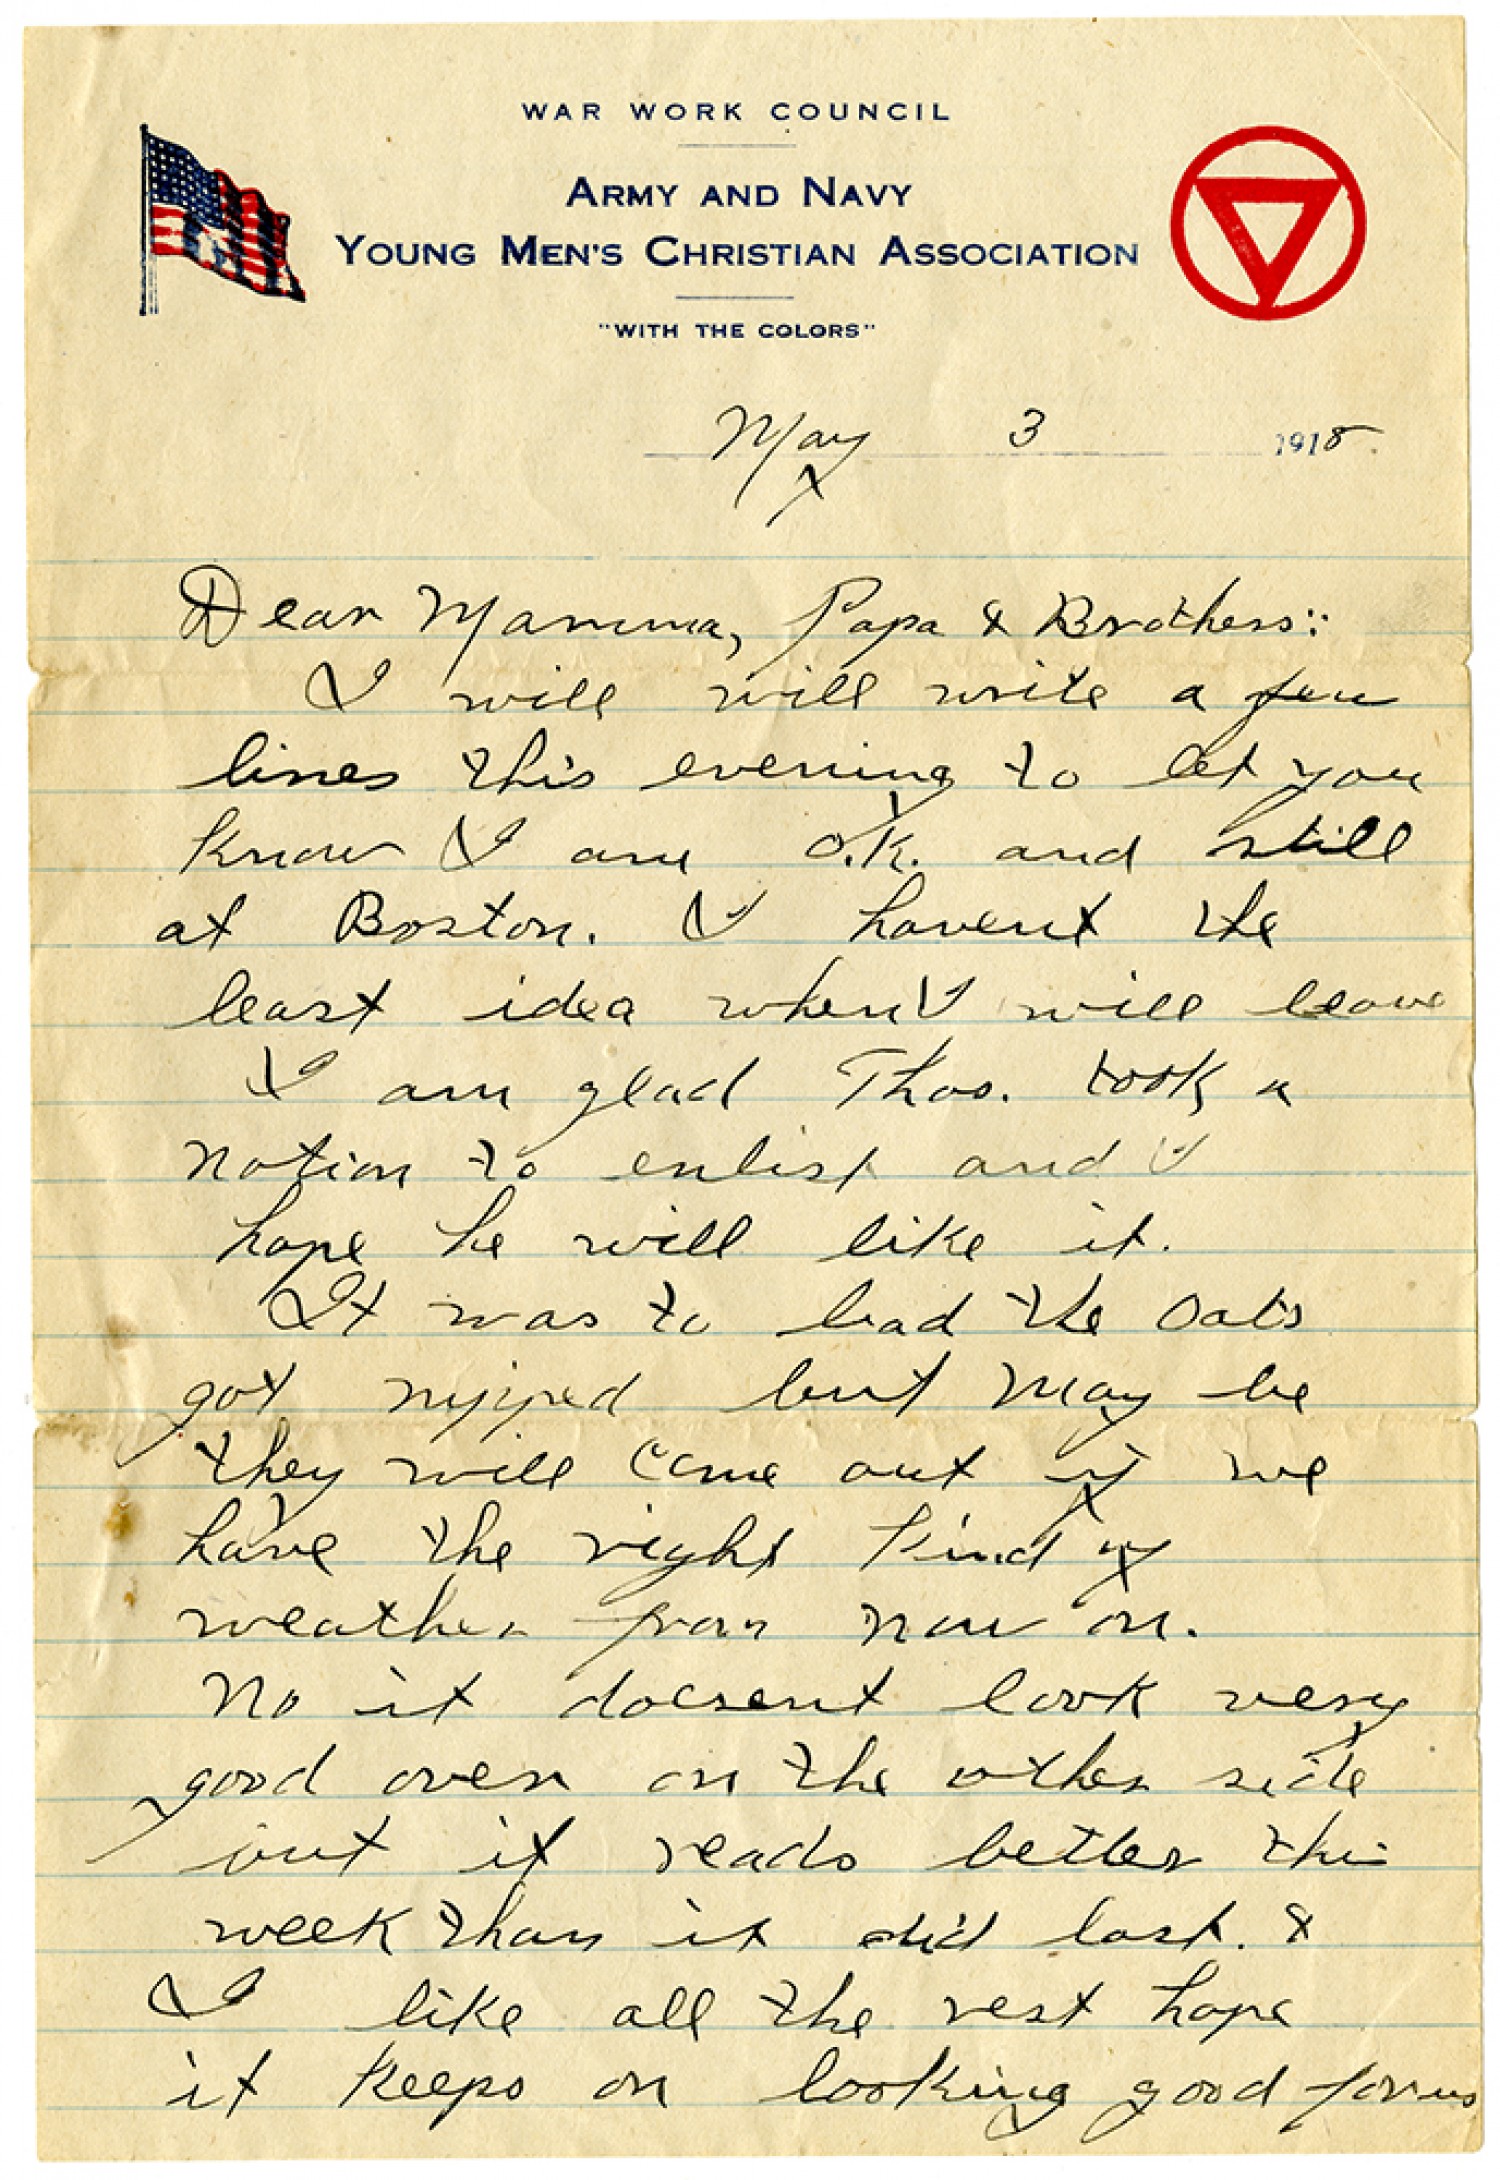 WAR WORK COUNCIL
ARMY AND NAVY
YOUNG MEN'S CHRISTIAN ASSOCIATION
"WITH THE COLORS"
May 3 1918
Dear Mamma, Papa & Brothers:
I will will write a few
lines this evening to let you
know I am O.K. and still
at Boston. I havent the
least idea when I will leave
I am glad Thos. took a
notion to enlist and I
hope he will like it.
It was to bad the oats
got nipped but may be
they will come out if we
have the right kind of
weather from now on.
No it doesent look very
good over on the other side
but it reads better this
week than it did last. &
I like all the rest hope
it keeps on looking good for us